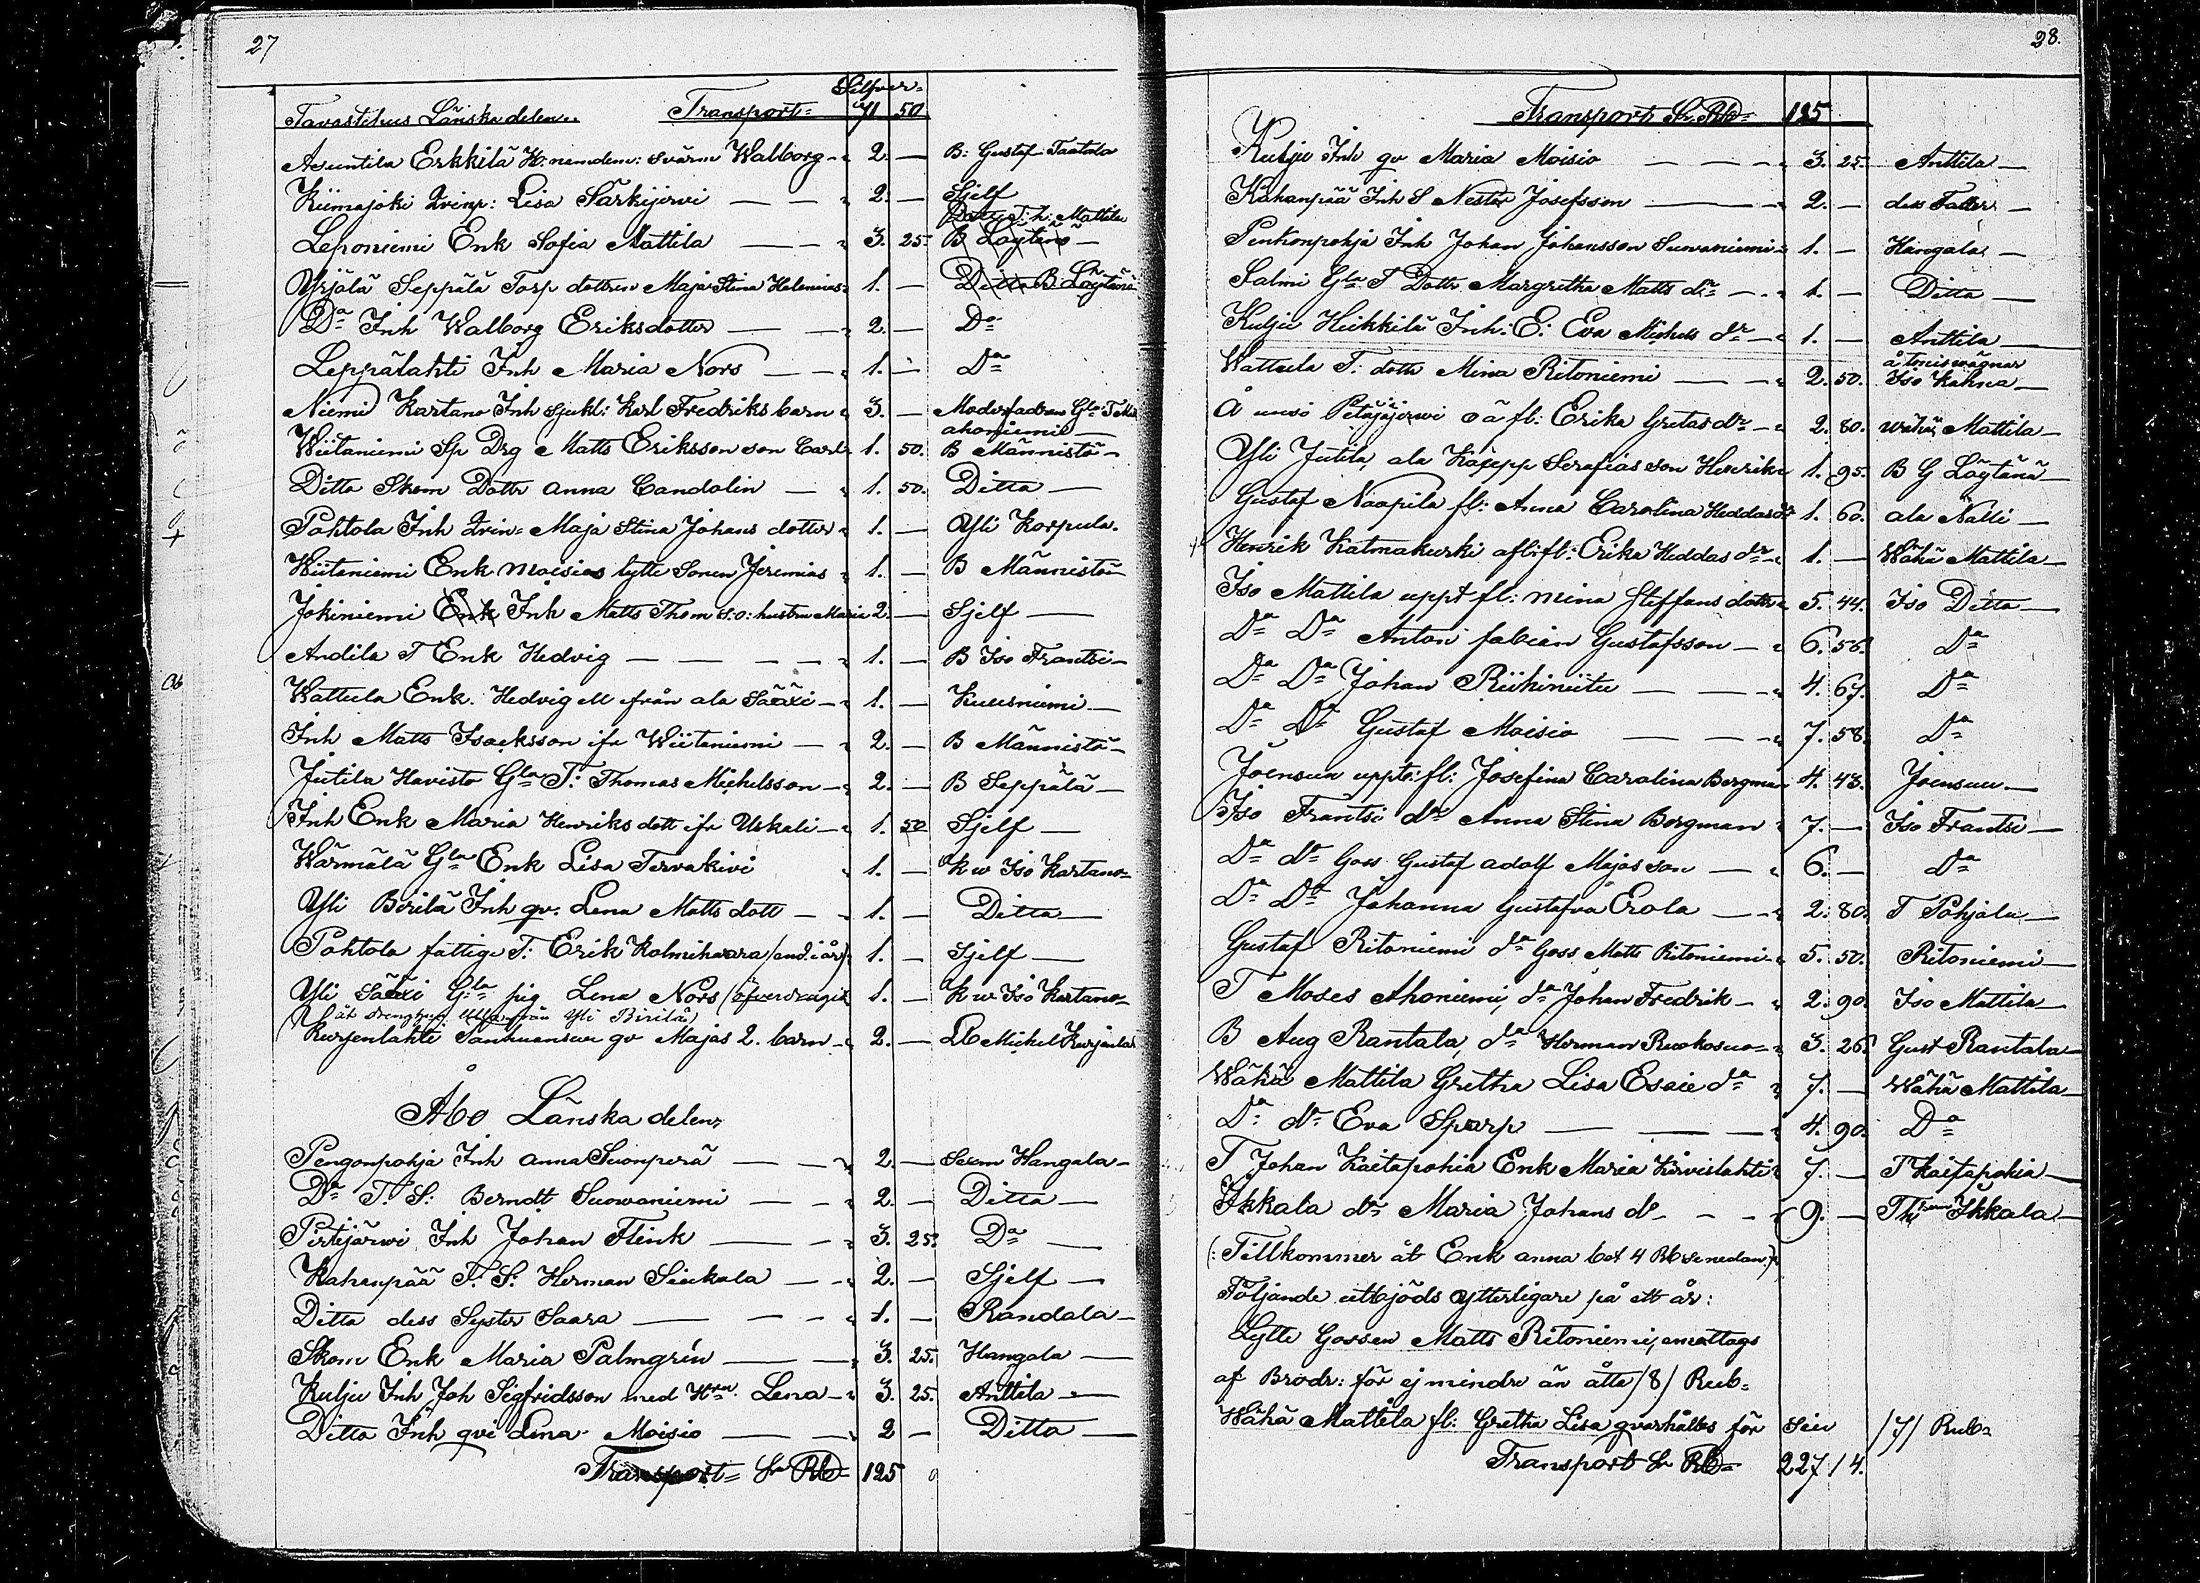 27
Silfver=
Tavastehus Länska delen. Transport= 71 50
Asuntila Erkkilä H: nämdem: svärm Walborg 2. — B: Gustaf Taatala
Kiimajoki Qvinp: Lisa Särkijervi — — 2. — Sjelf
Mattila
Leponiemi Enk Sofia Mattila — — 3. 25. B Löytänä —
Yrjölä Seppälä Torp dottren Maja Stina Helenius 1. — Ditto B. Löytänä
Da Inh Walborg Eriksdotter — — 2. — Da
Leppälahti Inh Maria Nors — — 1. — Da
Niemi Kartano Inh sjukl: Karl Fredriks barn 3. — Moderfadren Gla T
ahoniemi —
Wiitaniemi Sp Drg Matts Eriksson son Carl 1. 50. B Männistö —
Ditto Skom Dottr Anna Candolin — 1. 50. Ditto —
Pohtola Inh Qvin= Maja Stina Johans dotter 1. — Yli Korpula.
Wiitaniemi Enk Moisios lytte Sonen Jeremias 1. — B Männistö
Jokiniemi Enk Inh Matts Thom s.o: hustru Maria 2. — Sjelf —
Andila T Enk Hedvig — — — — 1. — B Iso Frantsi —
Wattula Enk. Hedvig ell ifrån ala Sääxi — 1. — Kuusniemi —
Inh Matts Isacksson ifr Wiitaniemi — 2. — B Männistö —
Jutila Havisto Gla T: Thomas Michelsson — 2. — B Seppälä —
Inh Enk Maria Henriks dott ifr Uskali — 1. 50 Sjelf —
Wärmälä Gla Enk Lisa Tervakivi 1. — K w Iso Kartano=
Yli Birilä Inh qv: Lena Matts dott — 1. — Ditto —
Pohtola fattige T: Erik Kolmihaara /end. i år/ 1. — Sjelf —
Yli Sääxi Gla pig Lena Nors /öfverdragit 1. — K w Iso Kartano=
åt drenghus från Yli Birilä)
Kurjenlahti Tanhuansuu qv Majas 2. barn — 2. — Lb Michel Kurjenla
Åbo Länska delen,
Pengonpohja Inh Anna Suonperä — — 2. — Sexm Hangala —
Da T. S: Berndt Suowaniemi — — 2. — Ditto —
Pirtijärwi Inh Johan Flink — — 3. 25. Da —
Kahanpää T. S: Herman Siukola — 2. — Sjelf —
Ditto dess Syster Saara — — — 1. — Randala —
Skom Enk Maria Palmgrén — — 3. 25. Hangala —
Kulju Inh Joh Sigfridsson med Htru Lena — 3. 25. Anttila —
Ditto Inh qvi Lena Moisio — — 2 — Ditto —
Transport= Sr Rb= 125
28.
Transport Sr Rb= 125
Kulju Inh qv Maria Moisio — — — 3. 25. Anttila —
Kahanpää Inh S Nestor Josefsson — — 2. — dess Fader —
Penkonpohja Inh Johan Johansson Suowaniemi 1. — Hangala —
Salmi Gla T Dottr Margretha Matts dr — 1. — Ditto —
Kulju Heikkilä Inh: E: Eva Michels dr — 1. — Anttila —
Wattula T: dottr Mina Ritoniemi — — 2. 50. Iso Kahra —
Å unsi Petäjäjerwi o ä fl: Erika Gretas dr — 2. 80. Wähä Mattila —
Yli Jutila, ala Käsepp Serafias son Henrik 1. 95. B G Löytänä —
Gustaf Naapila fl: Anna Carolina Heddas dr 1. 60. ala Nälli —
Henrik Katmakurki afl: fl: Erika Heddas dr — 1. — Wähä Mattila —
Iso Mattila uppt fl: Mina Steffans dottr 5. 44. Iso Ditto —
Da Da Anton fabian Gustafsson — 6. 56. Da
Da Da Johan Riikiniitu — — 4. 67. Da
Da Da Gustaf Moisio — — 7. 58. Da
Joensuu uppts: fl: Josefina Carolina Bergman 4. 43. Joensuu —
Iso Frantsi dr Anna Stina Bergman 7. — Iso Frantsi —
Da dr Goss Gustaf Adolf Majas son — 6. — Da
Da Da Johanna Gustafva Erola — 2. 80. T Pohjala —
Gustaf Ritoniemi da Goss Matts Ritoniemi 5. 50. Ritoniemi —
T Moses Ahoniemi, da Johan Fredrik — 2. 90. Iso Mattila —
B Aug Rantala, da Herman Ruokosuo= 3. 26. Gust Rantala —
Wähä Mattila Gretha Lisa Esaie da 7. — Wähä Mattila —
Da dr Eva Sparp — — — 4. 90. Da
T Johan Kaitapohia Enk Maria Kirvislahti 7. — T Kaitapohia —
Ikkala dr Maria Johans dr — — — 9. — Ikkala —
(: Tillkommer åt Enk Anna bot 4 Rb senedan:)
Följande utbjöds ytterligare på ett år:
Lytte Gossen Matts Ritoniemi, emottags
af Brodr: för ej mindre än åtta /8/ Rub=
Wähä Mattila fl: Gretha Lisa qvarhålles för siu /7/ Rub=
Transport Sr Rb= 227 14.